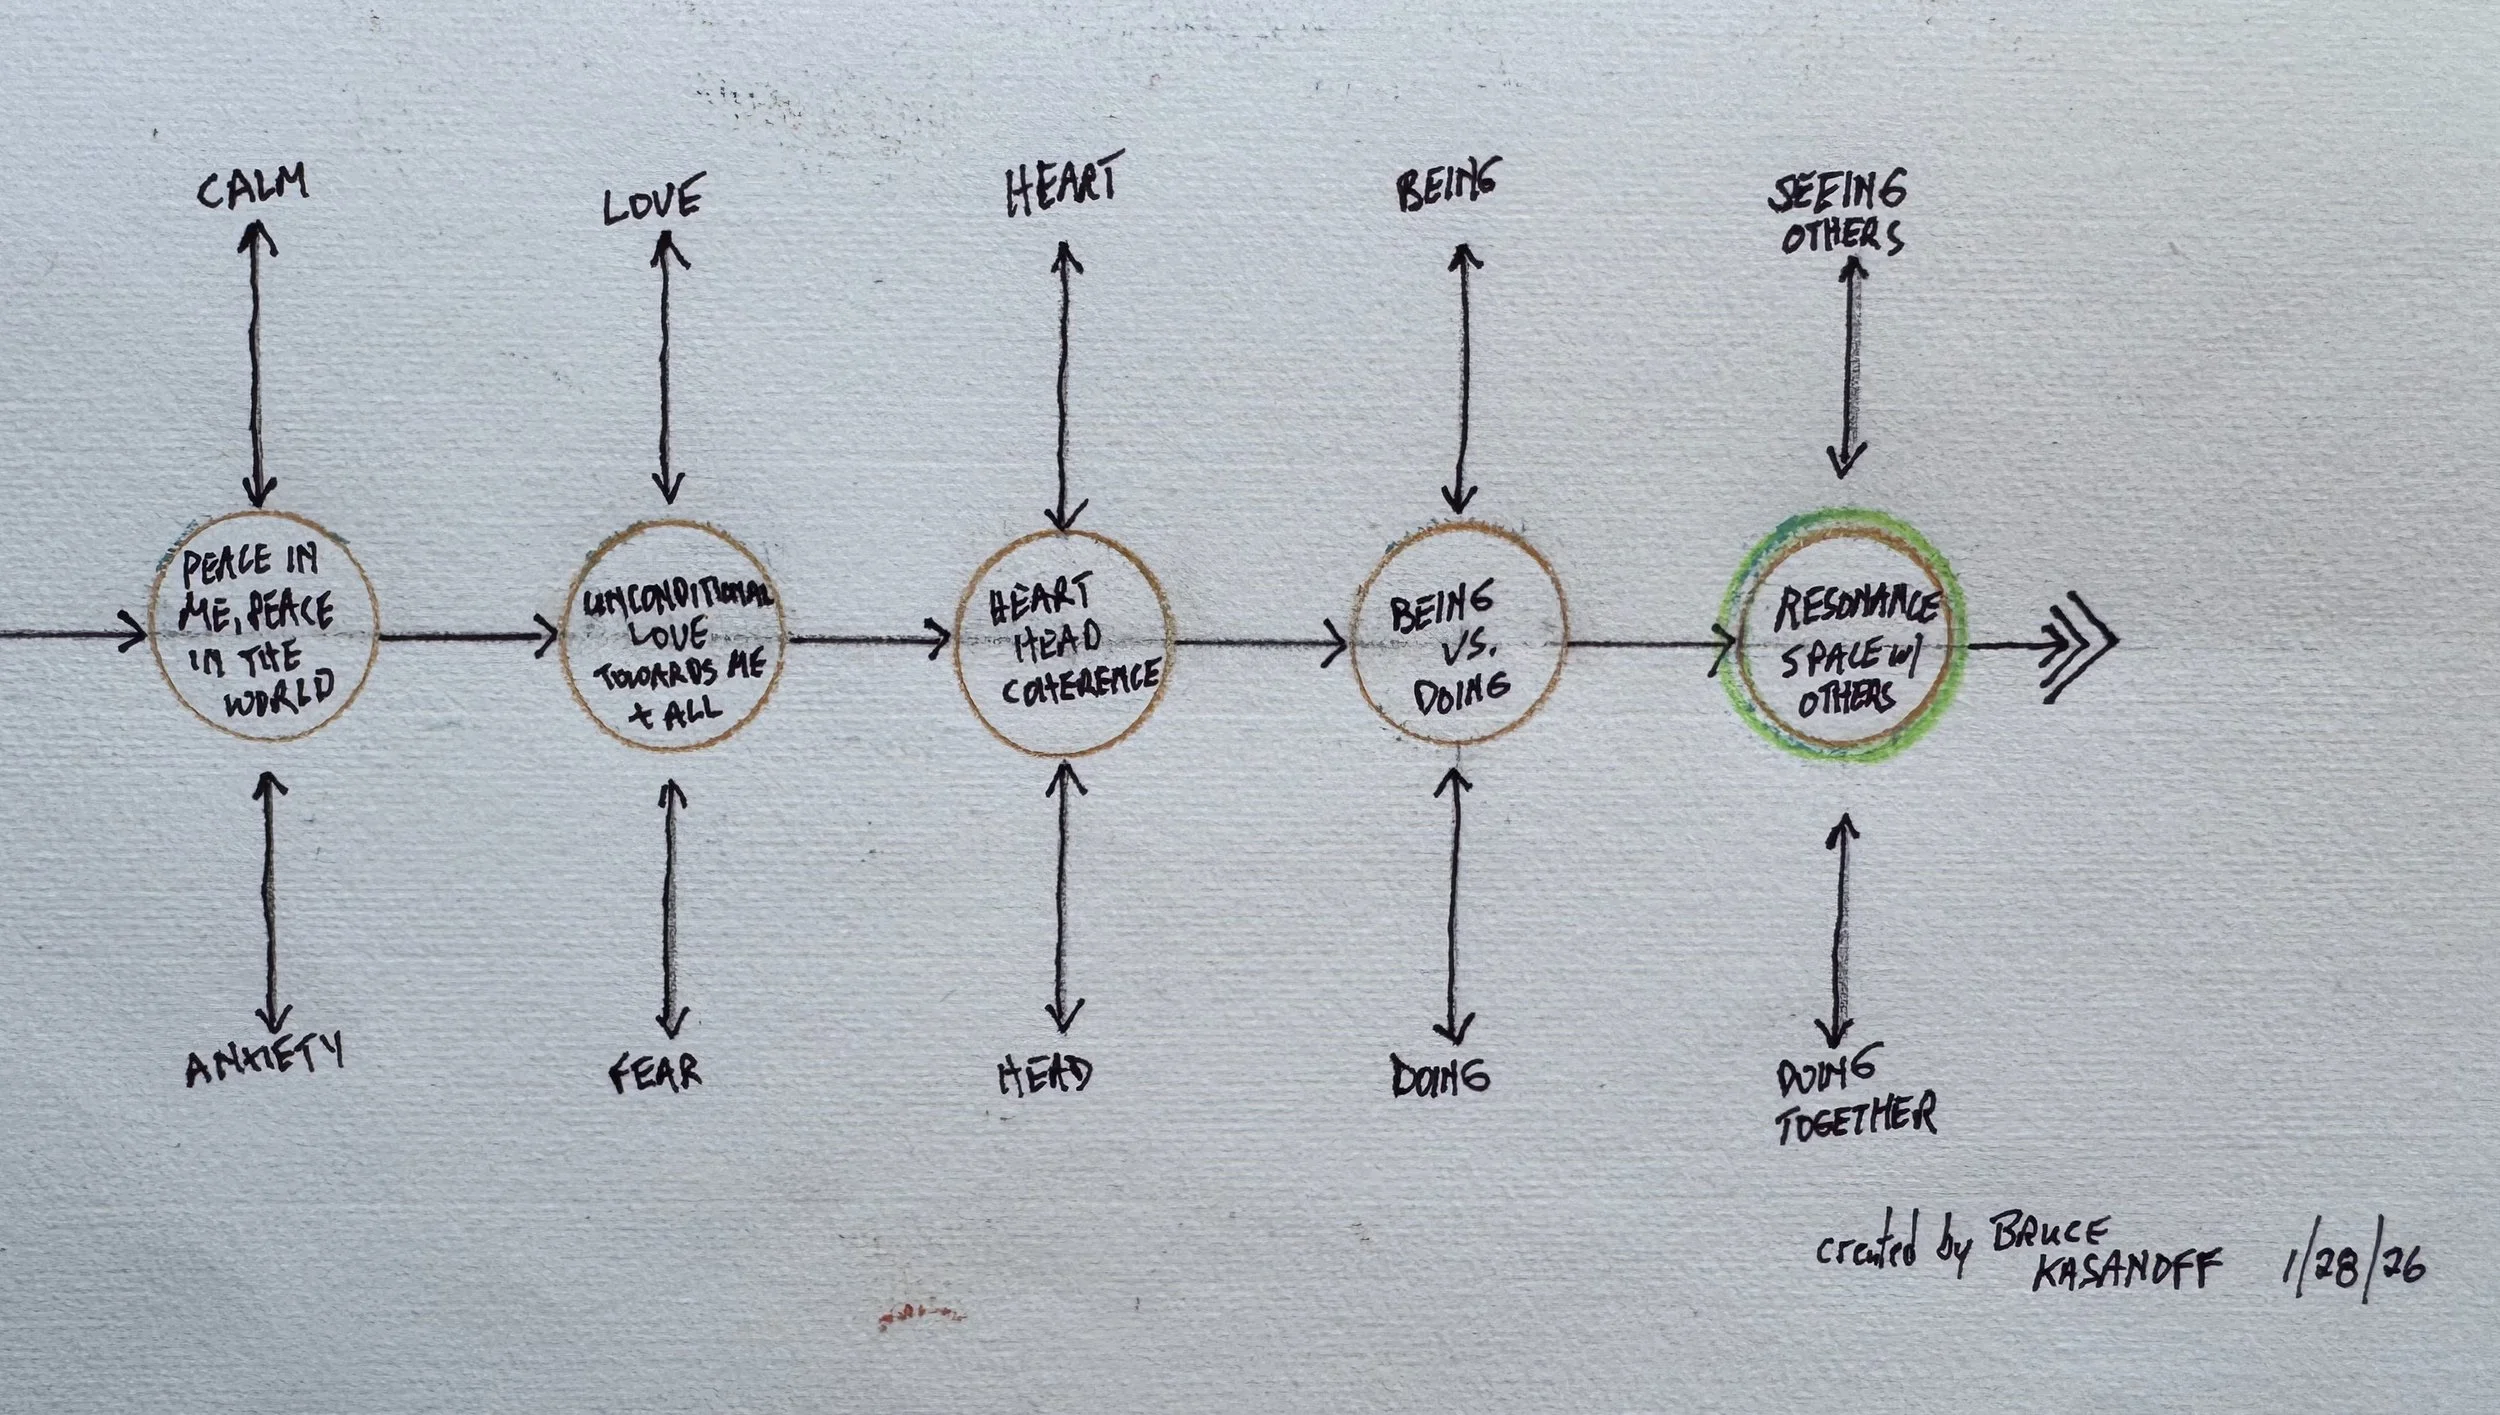 CALM
LOVE
HEART
BEING
SEEING
OTHERS
PEACE IN
ME, PEACE
IN THE
WORLD
UNCONDITIONAL
LOVE
TOWARDS ME
+ ALL
HEART
HEAD
COHERENCE
BEING
VS.
DOING
RESONANCE
SPACE W/
OTHERS
ANXIETY
FEAR
HEAD
DOING
DOING
TOGETHER
created by BRUCE
KASANOFF 1/28/26